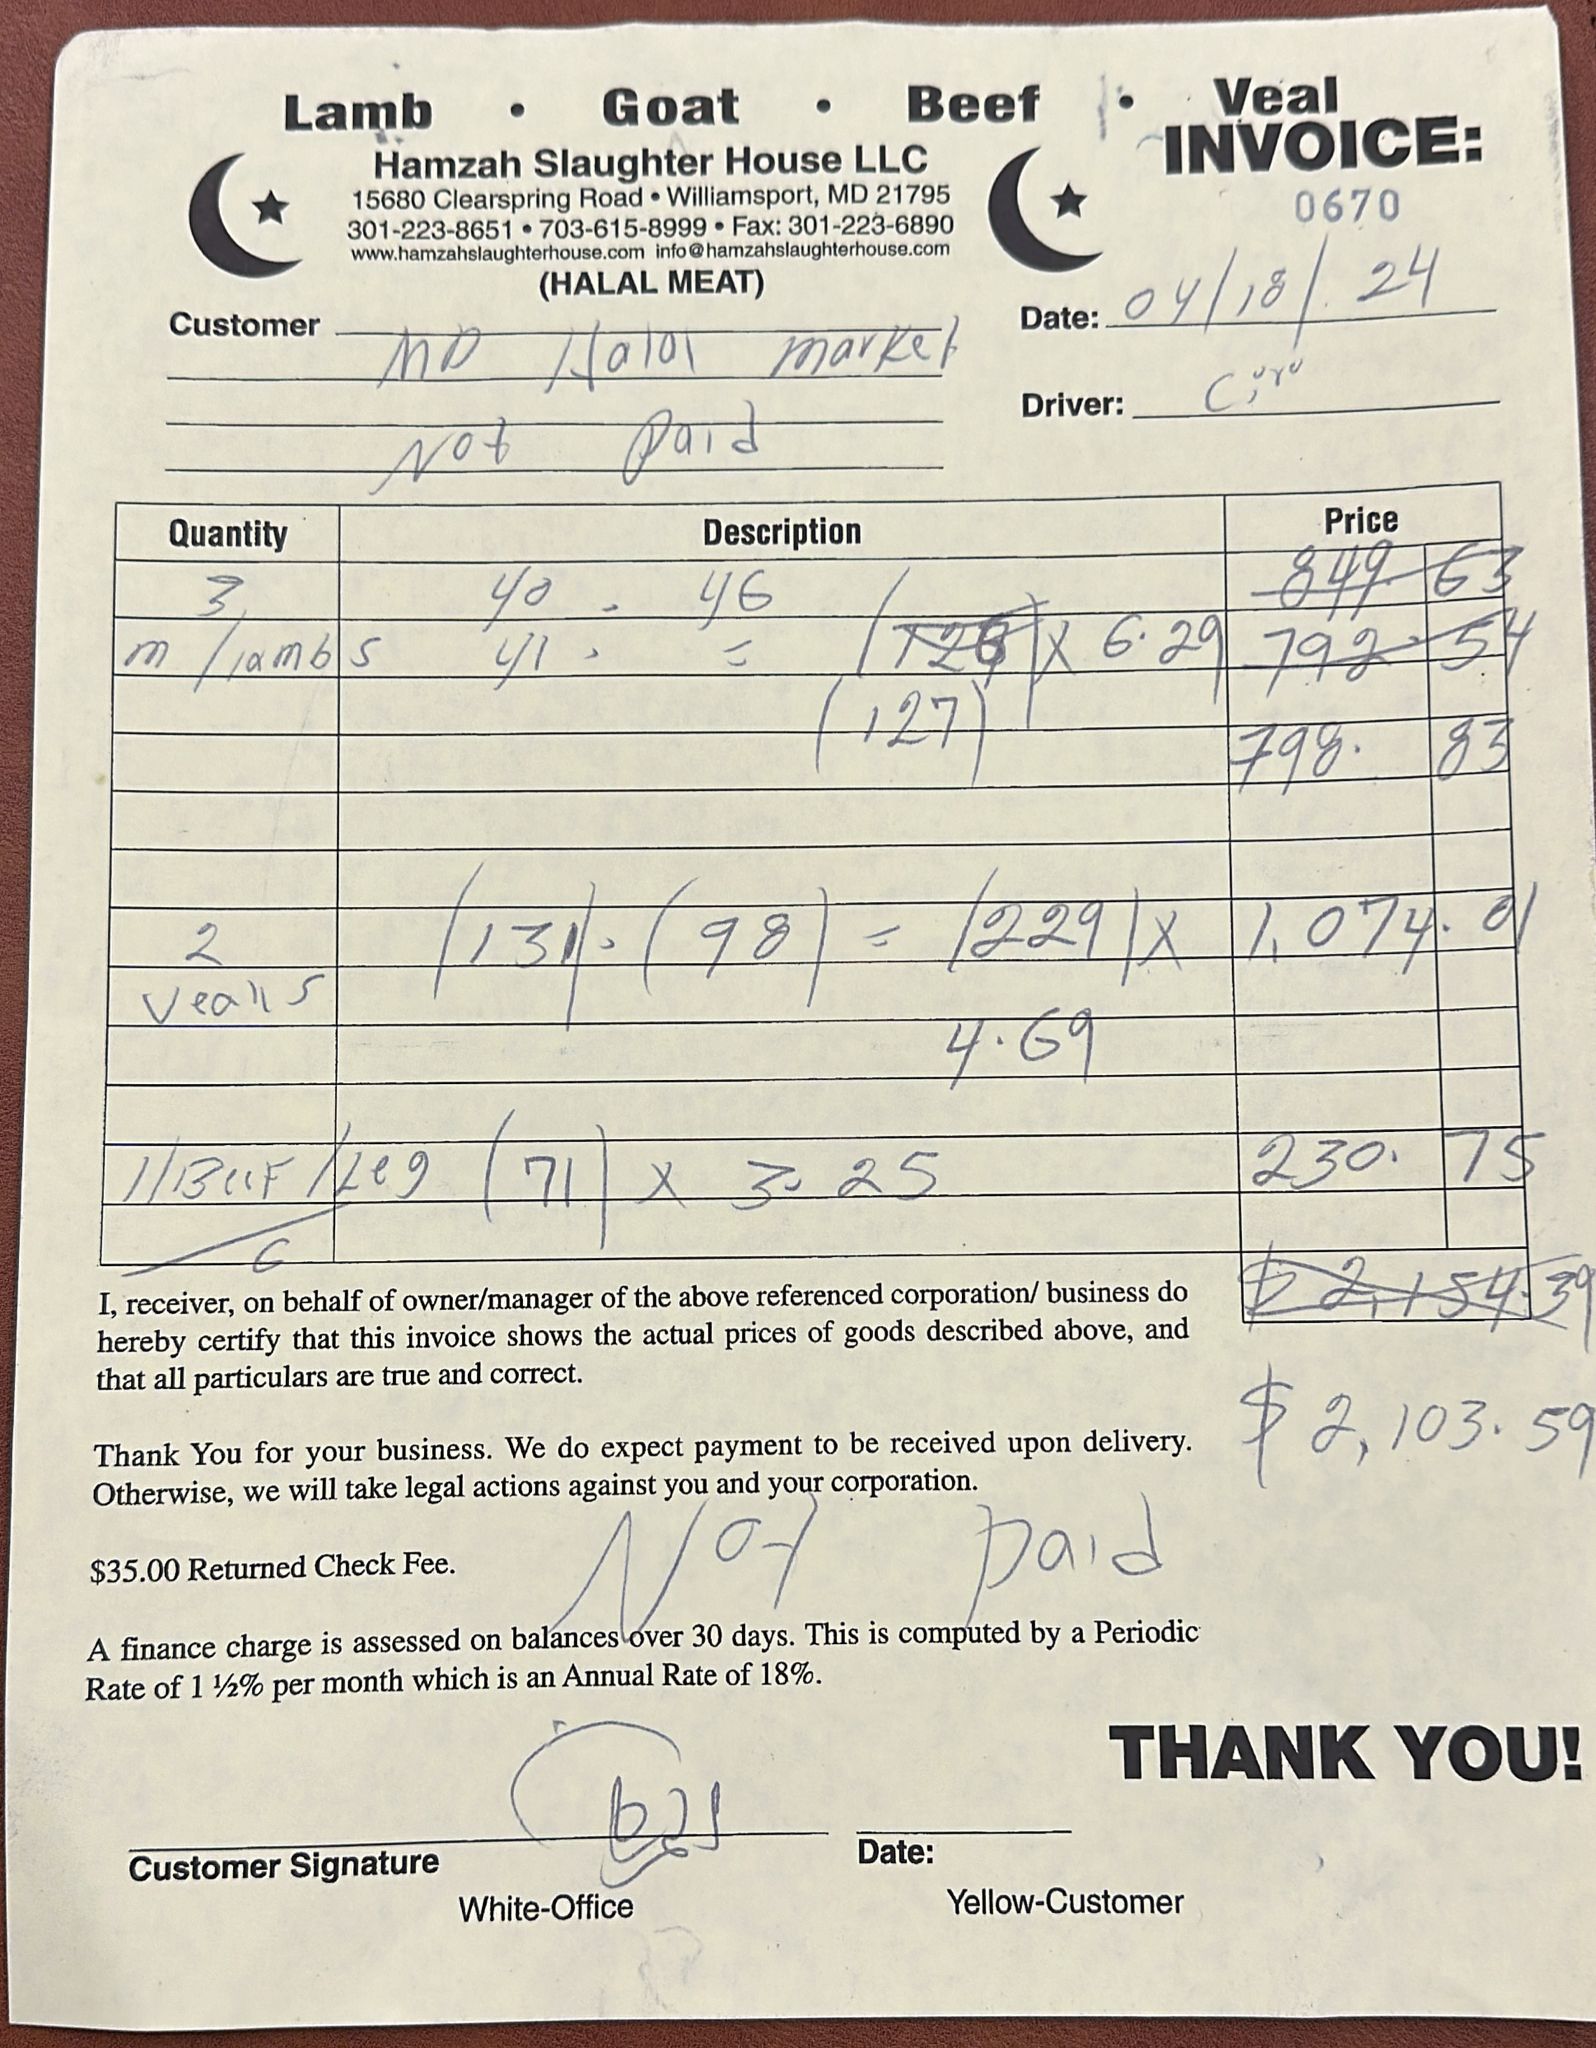 Lamb • Goat • Beef • Veal
INVOICE:
Hamzah Slaughter House LLC
15680 Clearspring Road • Williamsport, MD 21795
0670
301-223-8651 • 703-615-8999 • Fax: 301-223-6890
www.hamzahslaughterhouse.com info@hamzahslaughterhouse.com
(HALAL MEAT)
Date: 04/18/24
Customer MD Halal market
Driver:
Not Paid
Quantity Description Price
3 40 - 46 849. 63
m/lambs 41 - = (126) x 6.29 792 54
(127) 798. 83
2 (131) - (98) = (229) x 1,074.01
Vealls
4.69
1/Beef/Leg (71) x 3.25 230. 75
C
$2,154.39
I, receiver, on behalf of owner/manager of the above referenced corporation/ business do
hereby certify that this invoice shows the actual prices of goods described above, and
that all particulars are true and correct.
$2,103.59
Thank You for your business. We do expect payment to be received upon delivery.
Otherwise, we will take legal actions against you and your corporation.
Not paid
$35.00 Returned Check Fee.
A finance charge is assessed on balances over 30 days. This is computed by a Periodic
Rate of 1 ½% per month which is an Annual Rate of 18%.
THANK YOU!
Customer Signature Date:
White-Office Yellow-Customer